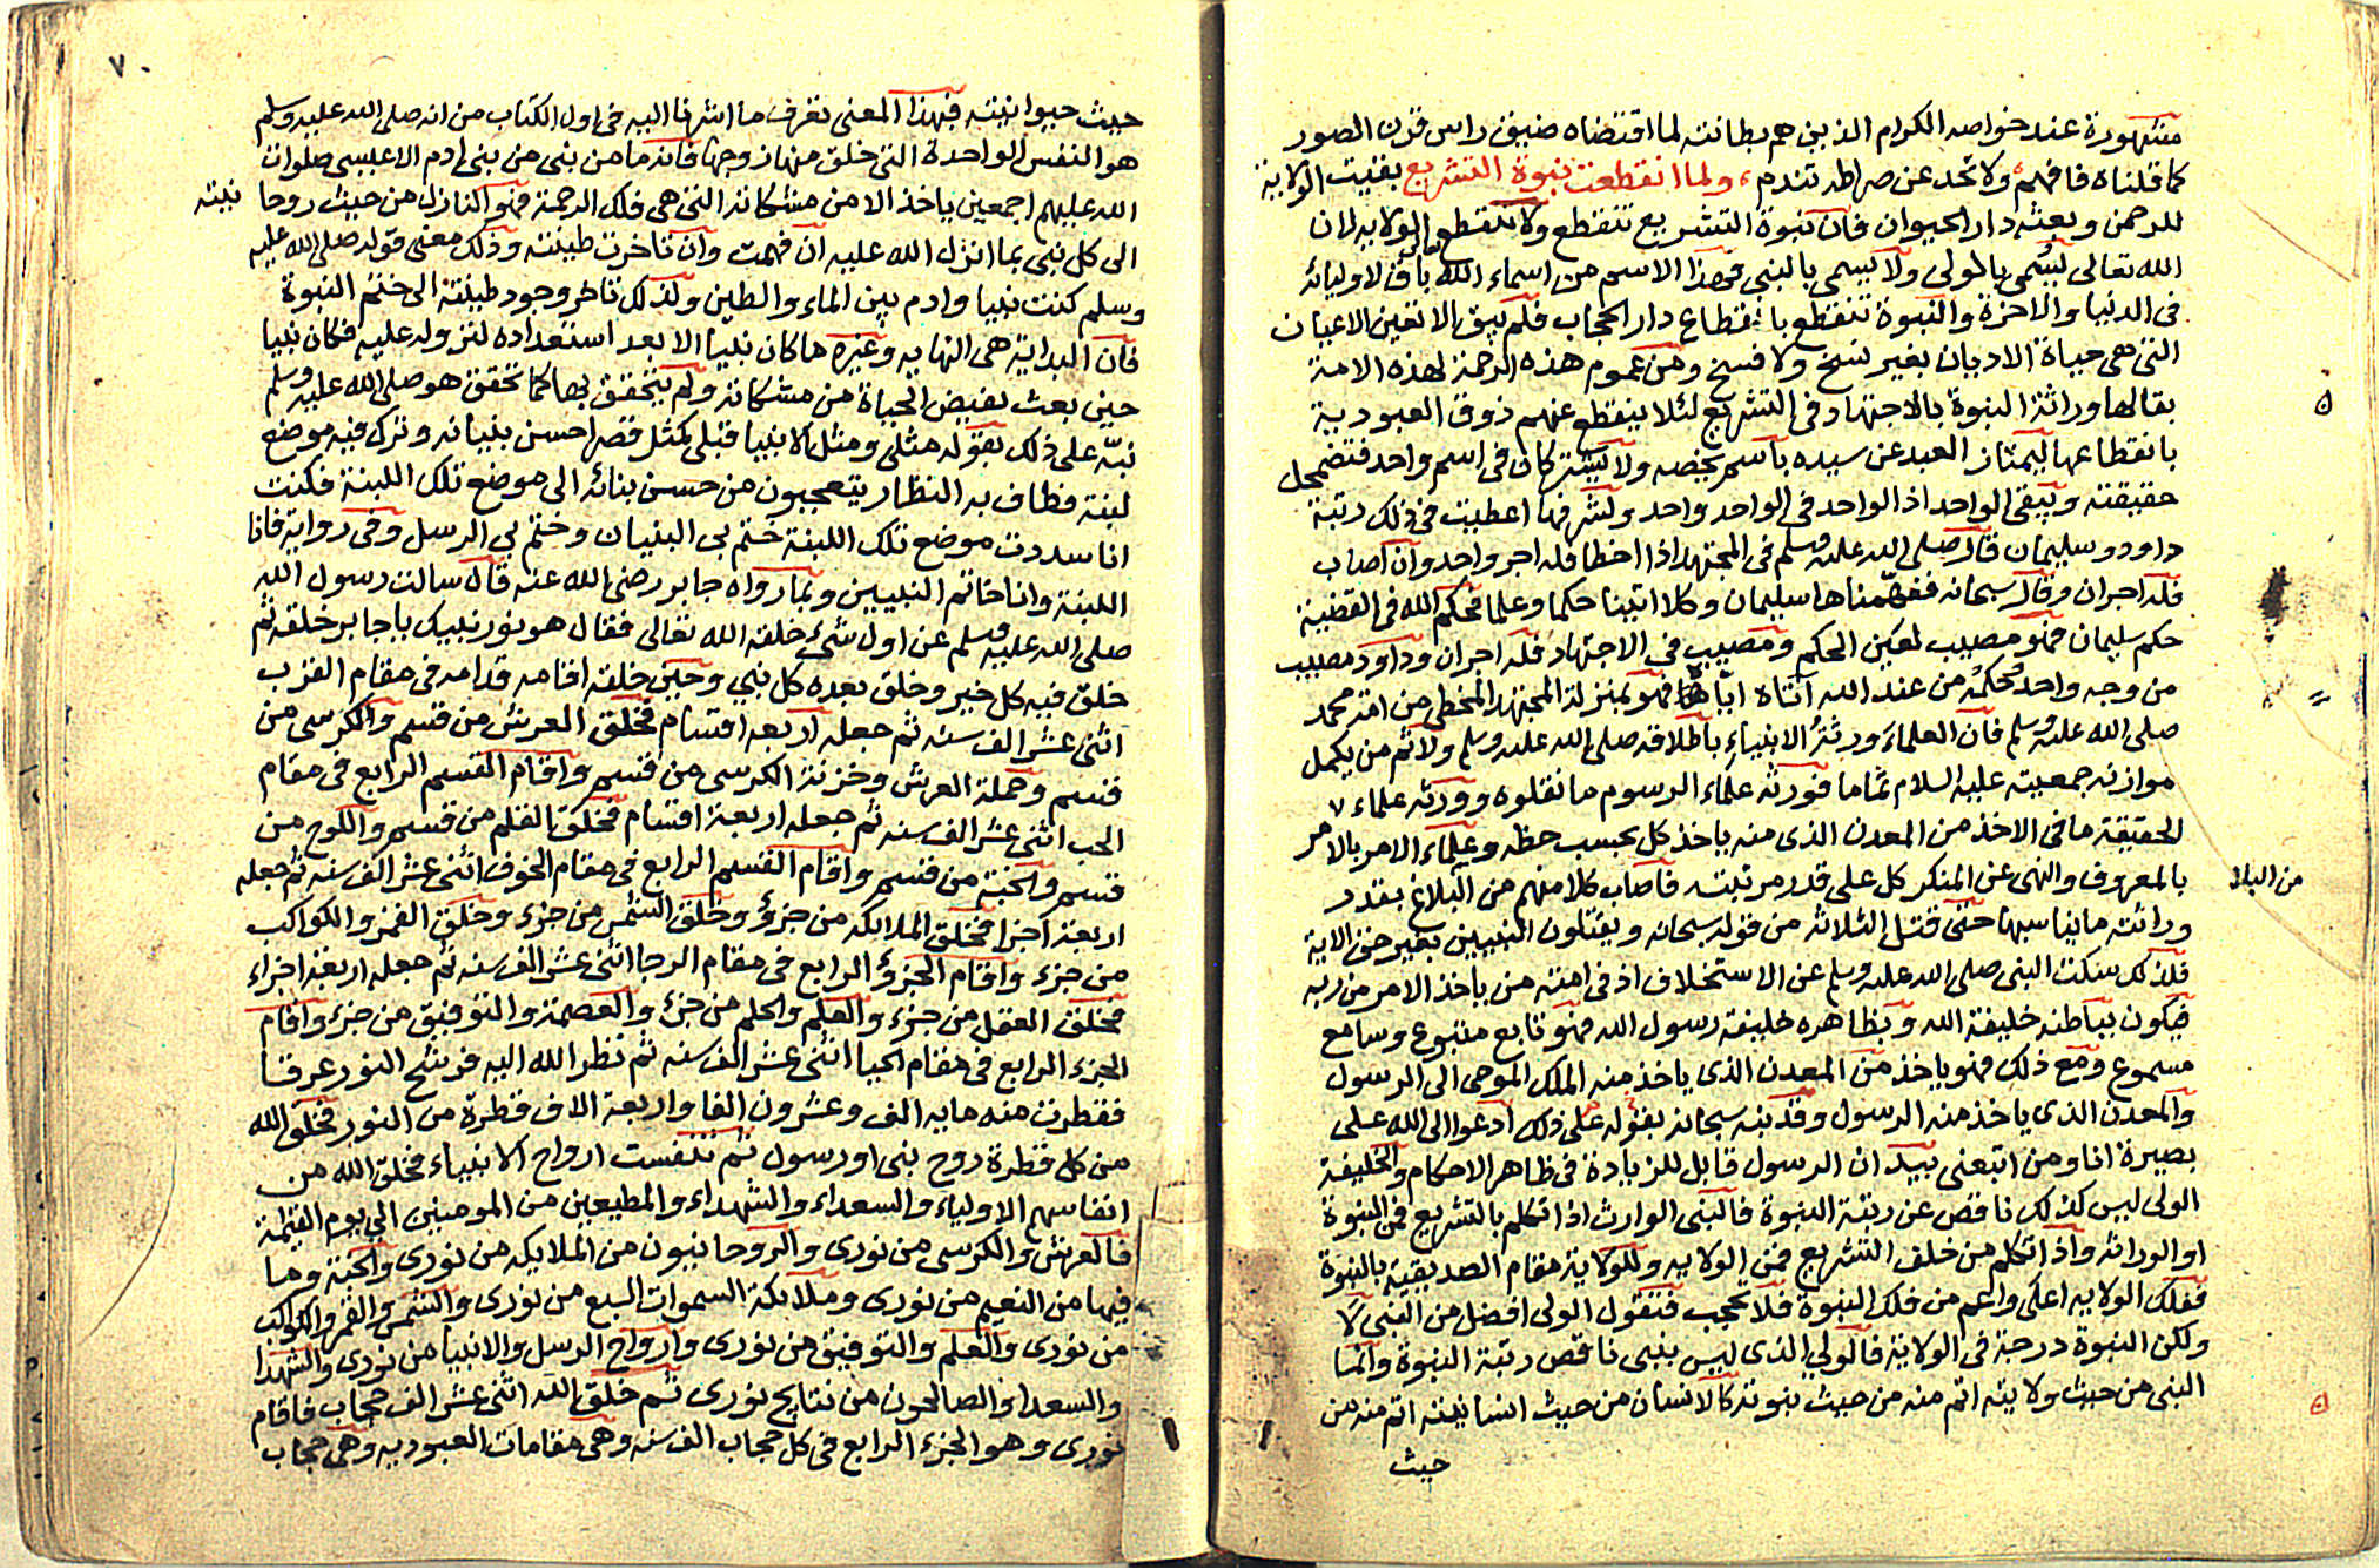 مشهورة عند خواصه الكرام الذين هم بطانته لما اقتضاه ضيق راس قرن الصور
كما قلناه فافهم، ولا تحد عن صراطه تندم، ولما انقطعت نبوة التشريع بقيت الولاية
للرحمن وبعثه دار الحيوان فان نبوة التشريع تنقطع ولا تنقطع الولايه لان
الله تعالى ليسمى بالمولى ولا يسمى بالنبى فهذا الاسم من اسماء الله باق لاوليائه
فى الدنيا والاخرة والنبوة تنقطع بانقطاع دار الحجاب فلم يبق الا تعين الاعيان
التى هى حياة الاديان بغير نسخ ولا فسخ ومن عموم هذه الرحمة لهذه الامة
بقا لها وراثة النبوة بالاجتهاد فى التشريع لئلا ينقطع عنهم ذوق العبودية
بانقطاعها ليمتاز العبد عن سيده باسم يخصه ولا يشتركان فى اسم واحد فتضمحل
حقيقته ويبقى الواحد اذ الواحد فى الواحد واحد ولشرفها اعطيت فى ذلك رتبة
داود وسليمان قال صلى الله عليه وسلم فى المجتهد اذا اخطا فله اجر واحد وان اصاب
فله اجران وقال سبحانه ففهمناها سليمان وكلا اتينا حكما وعلما فحكم الله فى القضية
حكم سليمان فهو مصيب لعين الحكم ومصيب فى الاجتهاد فله اجران وداود مصيب
من وجه واحد فحكمه من عند الله اتاه اياه فهو بمنزلة المجتهد المخطى من امة محمد
صلى الله عليه وسلم فان العلماء ورثة الانبياء باطلاقه صلى الله عليه وسلم ولا ثم من يكمل
موازنه جمعيته عليه السلام تماما فورثه علماء الرسوم ما نقلوه وورثه علماء
الحقيقة ما فى الاخذ من المعدن الذى منه ياخذ كل بحسب حظه وعلماء الامر بالامر
بالمعروف والنهى عن المنكر كل على قدر مرتبته فاصاب كلا منهم من البلاغ بقدر
من البلا
وراثته ما يناسبها حتى قتل الثلاثه من قوله سبحانه ويقتلون النبيين بغير حق الاية
فلذلك سكت النبى صلى الله عليه وسلم عن الاستخلاف اذ فى امته من ياخذ الامر من ربه
فيكون بباطنه خليفة الله وبظاهره خليفة رسول الله فهو تابع متبوع وسامع
مسموع ومع ذلك فهو ياخذ من المعدن الذى ياخذ منه الملك الموحى الى الرسول
والمعدن الذى ياخذ منه الرسول وقد نبه سبحانه بقوله على ذلك ادعوا الى الله على
بصيرة انا ومن اتبعنى بيد ان الرسول قابل للزيادة فى ظاهر الاحكام والخليفة
الولى ليس كذلك ناقص عن رتبة النبوة فالنبى الوارث اذا تكلم بالتشريع فمن النبوة
او الوراثه واذا تكلم من خلف التشريع فمن الولايه وللولاية مقام الصديقية بالنبوة
ففلك الولايه اعلى واعم من فلك النبوة فلا تحجب فتقول الولى افضل من النبى لا
ولكن النبوة درجة فى الولاية فالولي الذى ليس بنبى ناقص رتبة النبوة وانما
النبى من حيث ولايته اتم منه من حيث نبوته كالانسان من حيث انسانيته اتم منه من
حيث
٧٠
حيث حيوانيته فبهذا المعنى تعرف ما اشرنا اليه فى اول الكتاب من انه صلى الله عليه وسلم
هو النفس الواحدة التى خلق منها زوجها فانه ما من نبى من بنى ادم الا عليسى صلوات
الله عليهم اجمعين ياخذ الا من مشكاته التى هى فلك الرحمة فهو النازل من حيث روحا نيته
الى كل نبى بما انزل الله عليه ان فهمت وان تاخرت طينته وذلك معنى قوله صلى الله عليه
وسلم كنت نبيا وادم بين الماء والطين ولذلك تاخر وجود طينته الى ختم النبوة
فان البداية هى النهايه وغيره ما كان نبيا الا بعد استعداده لنزوله عليه فكان نبيا
حين بعث بفيض الحياة من مشكاته ولم يتحقق بها كما تحقق هو صلى الله عليه وسلم
نبه على ذلك بقوله مثلى ومثل الانبيا قبلى كمثل قصر احسن بنيانه وترك فيه موضع
لبنة فطاف به النظار يتعجبون من حسن بنائه الى موضع تلك اللبنة فكنت
انا سددت موضع تلك اللبنة ختم بى البنيان وختم بي الرسل وفى رواية فانا
اللبنة وانا خاتم النبيين وبما رواه جابر رضى الله عنه قال سالت رسول الله
صلى الله عليه وسلم عن اول شىء خلقه الله تعالى فقال هو نور نبيك يا جابر خلقه ثم
خلق فيه كل خير وخلق بعده كل نبي وحين خلقه اقامه قدامه فى مقام القرب
اثنى عشر الف سنه ثم جعله اربعه اقسام فخلق العرش من قسم والكرسى من
قسم وحملة العرش وخزنة الكرسى من قسم واقام القسم الرابع فى مقام
الحب اثنى عشر الف سنه ثم جعله اربعة اقسام فخلق القلم من قسم واللوح من
قسم والجنة من قسم واقام القسم الرابع فى مقام الخوف اثنى عشر الف سنه ثم جعله
اربعة اجزا فخلق الملايكه من جزؤ وخلق الشمس من جزء وخلق القمر والكواكب
من جزء واقام الجزؤ الرابع فى مقام الرجا اثنى عشر الف سنه ثم جعله اربعة اجزاء
فخلق العقل من جزء والعلم والحلم من جزء والعصمة والتوفيق من جزء واقام
الجزء الرابع فى مقام الحيا اثنى عشر الف سنه ثم نظر الله اليه فرشح النور عرقا
فقطرت منه مايه الف وعشرون الفا واربعة الاف قطرة من النور فخلق الله
من كل قطرة روح نبى او رسول ثم تنفست ارواح الانبياء فخلق الله من
انفاسهم الاولياء والسعداء والشهداء والمطيعين من المومنين الى يوم القيمة
فالعرش والكرسى من نورى والروحانيون من الملايكه من نورى والجنة وما
فيها من النعيم من نورى وملائكة السموات السبع من نورى والشمس والقمر والكواكب
من نورى والعلم والتوفيق من نورى وارواح الرسل والانبيا من نورى والشهدا
والسعدا والصالحون من نتايج نورى ثم خلق الله اثنى عشر الف حجاب فاقام
نورى وهو الجزء الرابع فى كل حجاب الف سنه وهى مقامات العبوديه وهى حجاب